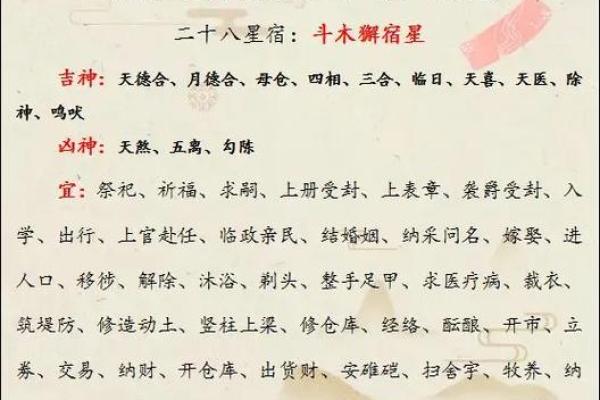 二十八星宿：斗木獬宿星
吉神：天德合、月德合、母仓、四相、三合、临日、天喜、天医、除
神、鸣吠
凶神：天煞、五离、勾陈
宜：祭祀、祈福、求嗣、上册受封、上表章、袭爵受封、入
学、出行、上官赴任、临政亲民、结婚姻、纳采问名、嫁娶、进
人口、移徙、解除、沐浴、剃头、整手足甲、求医疗病、裁衣、
筑堤防、修造动土、竖柱上梁、修仓库、经络、酝酿、开市、立
券、交易、纳财、开仓库、出货财、安碓硙、扫舍宇、牧养、纳